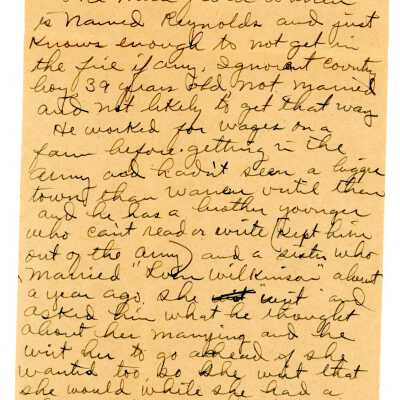 is named Reynolds and just
knows enough to not get in
the fire if any. Ignorant country
boy 39 years old not married
and not likely to get that way
He worked for wages on a
farm before getting in the
army and hadn't seen a bigger
town than Warren until then
and he has a brother younger
who cant read or write (kept him
out of the army) and a sister who
married "Wilkinson" about
a year ago. she "writ" and
asked him what he thought
about her marrying and he
writ her to go ahead if she
wanted too so she writ that
she would while she had a